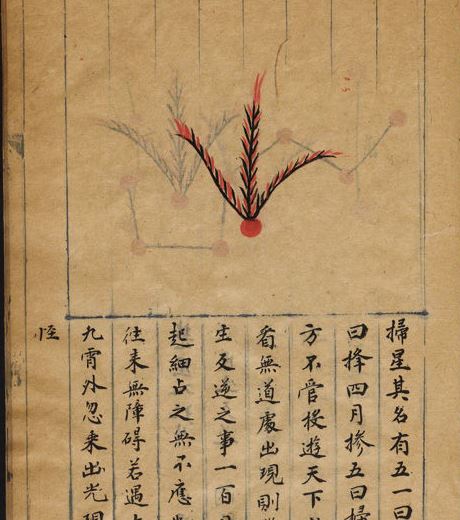 掃星其名有五一曰
曰四月掺五曰掃
方不管投遊天下
看無道處出現則
生反逆之事一百
起細占之無不應
往来無障碍若遇
九霄外忽来出光現
恠